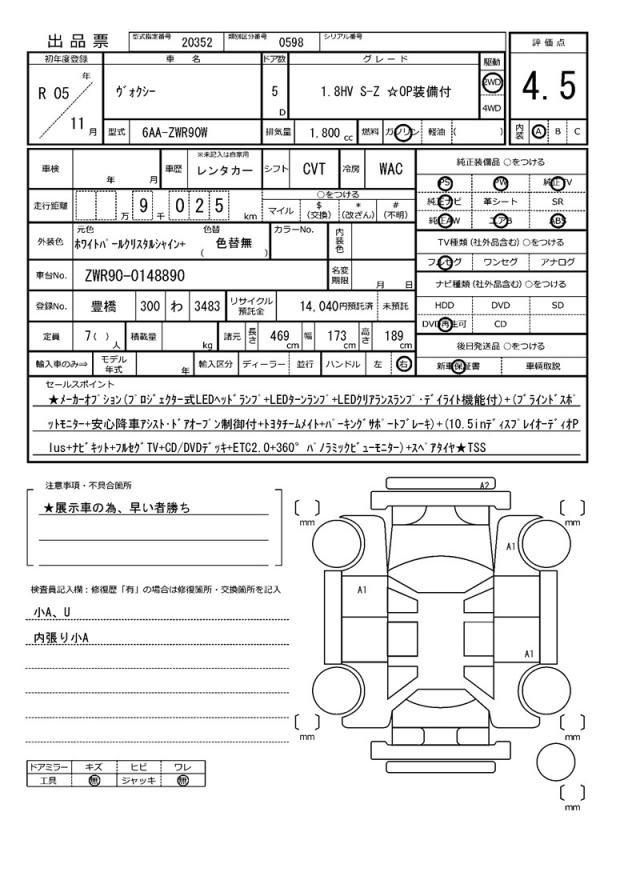 出品票 型式指定番号 20352 類別区分番号 0598 シリアル番号
評価点
初年度登録 車名 ドア数 グレード 駆動
R 05 年 ヴォクシー 5 D 1.8HV S-Z ☆OP装備付 2WD 4.5
11 月 4WD
型式 6AA-ZWR90W 排気量 1.800 cc 燃料 ガソリン 軽油 ( ) 内装 A B C
車検 年 月 車歴 ※未記入は自家用 レンタカー シフト CVT 冷房 WAC
純正装備品 ○をつける
PS PW 純正TV
純正ナビ 革シート SR
純正AW エアB ABS
走行距離 万 9 千 0 2 5 km
○をつける
マイル $(交換) *(改ざん) #(不明)
TV種類(社外品含む)○をつける
フルセグ ワンセグ アナログ
外装色 元色 ホワイトパールクリスタルシャイン+ 色替 ( 色替無 ) カラーNo. 内装色
車台No. ZWR90-0148890 名変期限 月 日
ナビ種類(社外品含む)○をつける
HDD DVD SD
DVD再生可 CD
登録No. 豊橋 300 わ 3483 リサイクル預託金 14,040円預託済 未預託
定員 7( ) 人 積載量 kg 諸元 長さ 469 cm 幅 173 cm 高さ 189 cm
後日発送品 ○をつける
新車保証書 車輌取説
輸入車のみ⇒ モデル年式 年 輸入区分 ディーラー 並行 ハンドル 左 右
セールスポイント
★メーカーオプション(プロジェクター式LEDヘッドランプ+LEDターンランプ+LEDクリアランスランプ・デイライト機能付)+(ブラインドスポ
ットモニター+安心降車アシスト・ドアオープン制御付+トヨタチームメイト+パーキングサポートブレーキ)+(10.5inディスプレイオーディオP
lus+ナビキット+フルセグTV+CD/DVDデッキ+ETC2.0+360°パノラミックビューモニター)+スペアタイヤ★TSS
注意事項・不具合箇所
★展示車の為、早い者勝ち
検査員記入欄：修復歴「有」の場合は修復箇所・交換箇所を記入
小A、U
内張り小A
A2
mm mm
A1
A1
A1
mm mm
mm
ドアミラー キズ ヒビ ワレ
工具 無 ジャッキ 無